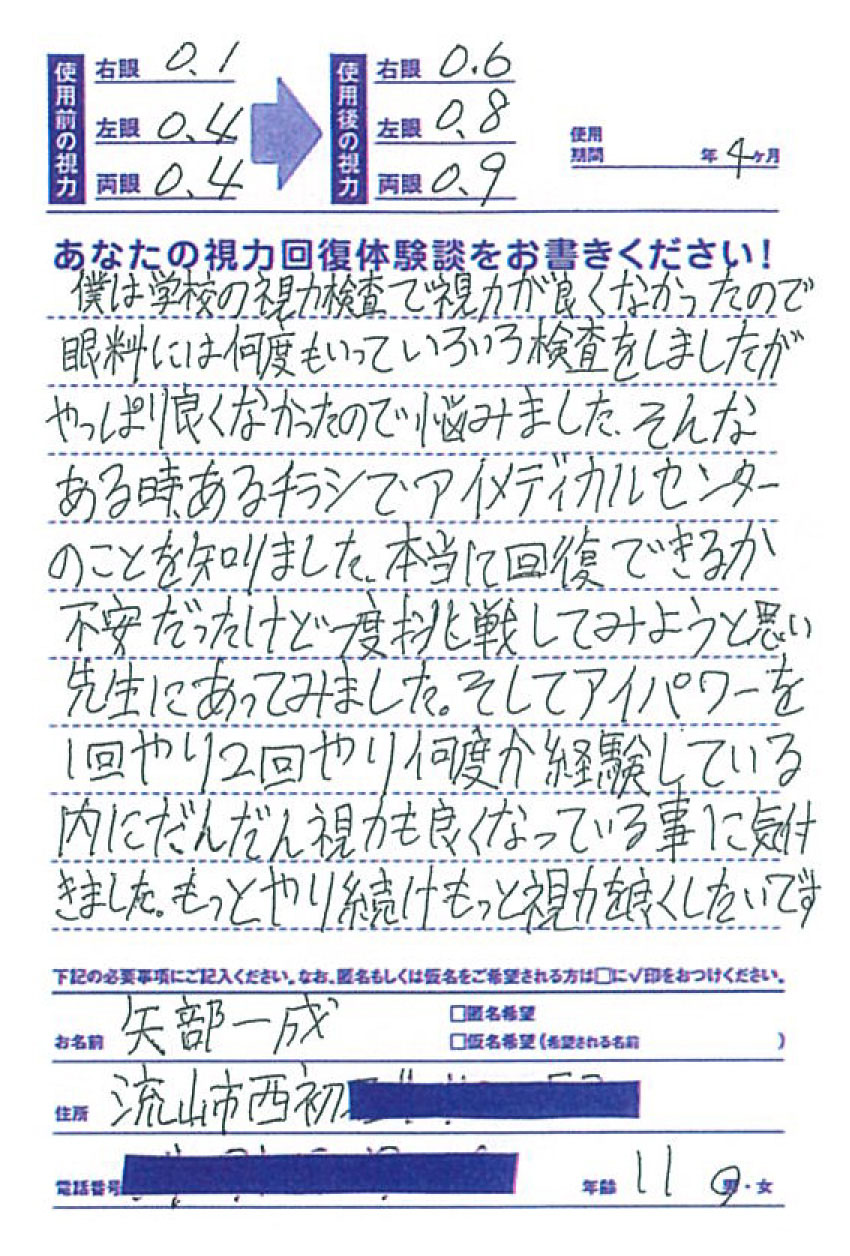 使用前の視力
右眼 0.1
左眼 0.4
両眼 0.4
使用後の視力
右眼 0.6
左眼 0.8
両眼 0.9
使用期間 年 4ヶ月
あなたの視力回復体験談をお書きください!
僕は学校の視力検査で視力が良くなかったので
眼料には何度もいっていろいろ検査をしましたが
やっぱり良くなかったので悩みました、そんな
ある時あるチラシでアイメディカルセンター
のことを知りました。本当に回復できるか
不安だったけど一度挑戦してみようと思い
先生にあってみました。そしてアイパワーを
1回やり2回やり何度か経験している
内にだんだん視力も良くなっている事に気付
きました。もっとやり続けもっと視力を良くしたいです
下記の必要事項にご記入ください。なお、匿名もしくは仮名をご希望される方は□に√印をおつけください。
お名前 矢部一成
□匿名希望
□仮名希望(希望される名前 )
住所 流山市西初
電話番号
年齢 11 男・女